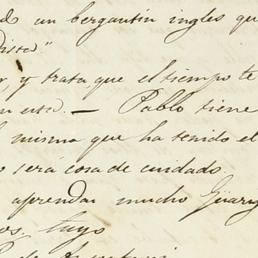 do un bergantin ingles qu
dista"
r, y trata que el tiempo te
en esta. — Pablo tiene
misma que ha tenido el
o será cosa de cuidado.
aprendan mucho Güarg
os, tuyo